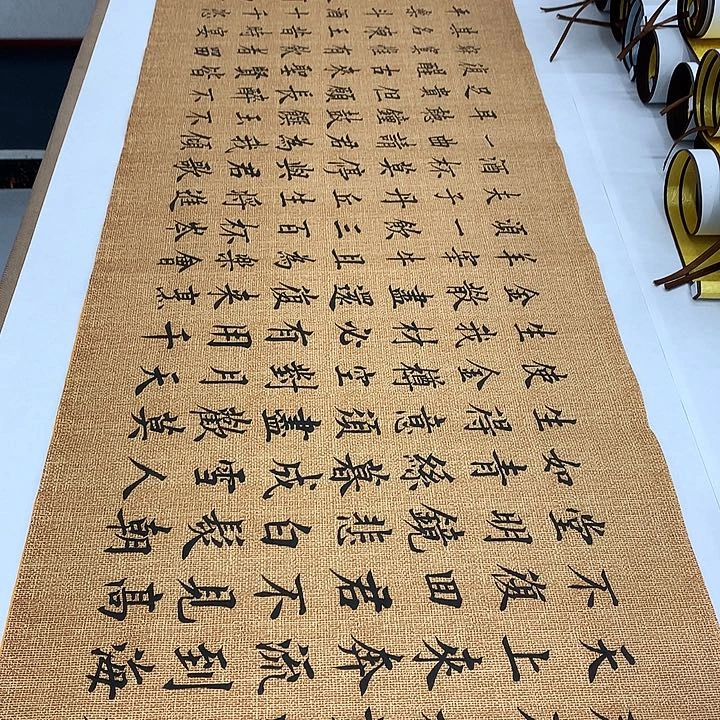 天上來奔流到海
不復回君不見高
堂明鏡悲白髮朝
如青絲暮成雪人
生得意須盡歡莫
使金樽空對月天
生我材必有用千
金散盡還復來烹
羊宰牛且為樂會
須一飲三百杯岑
夫子丹丘生將進
酒杯莫停與君歌
一曲請君為我傾
耳聽鐘鼓饌玉不
足貴但願長醉不
復醒古來聖賢皆
寂寞有飲者留
其名陳王昔時宴
平樂斗酒十千恣